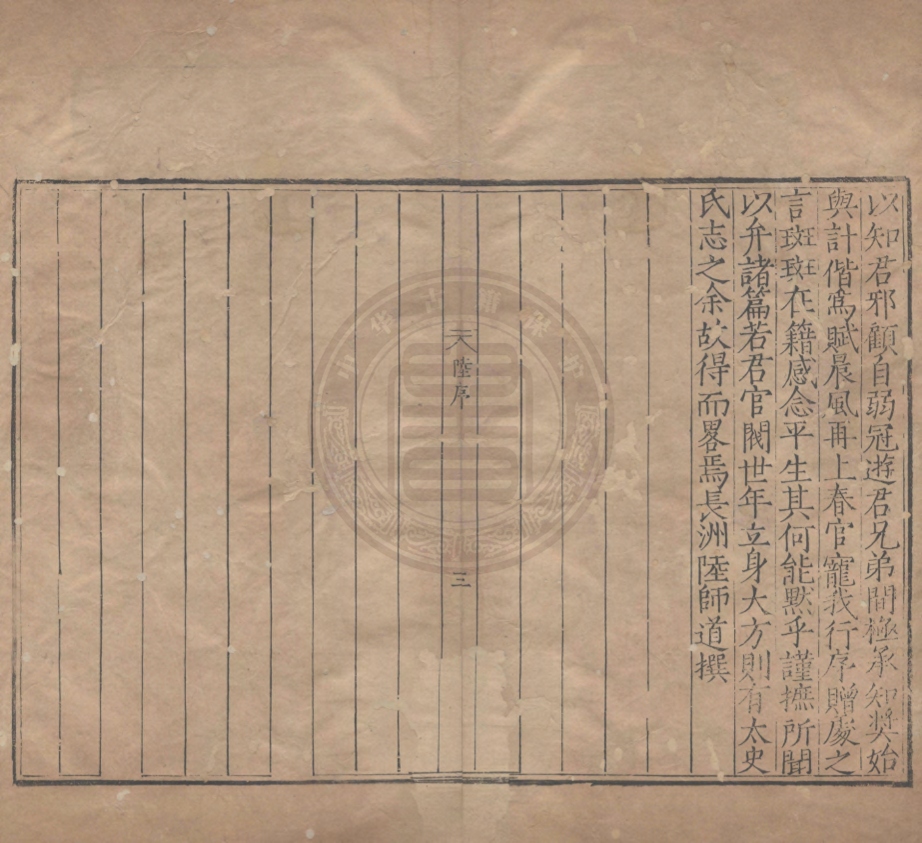 以知君邪顧自弱冠遊君兄弟間極承知奬始
與計偕爲賦晨風再上春官寵我行序贈處之
言斑斑在籍感念平生其何能默乎謹撫所聞
以弁諸篇若君官閥世年立身大方則有太史
氏志之余故得而畧焉長洲陸師道撰
陸序
三